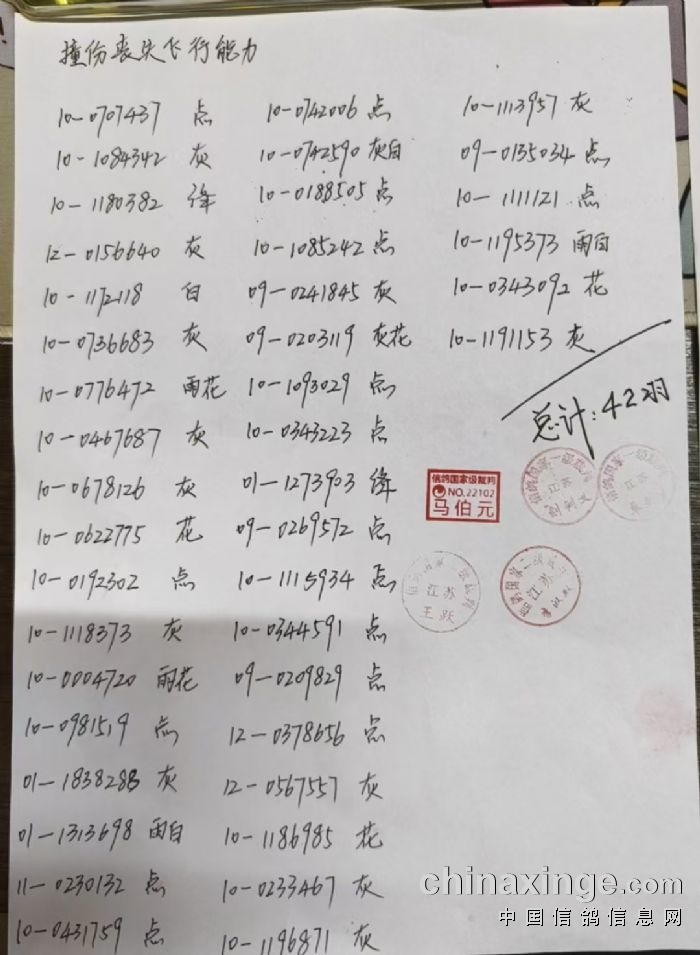 撞伤丧失飞行能力
10-0707437 点
10-1084342 灰
10-1180382 绛
12-0156640 灰
10-1172118 白
10-0736683 灰
10-0776472 雨花
10-0467687 灰
10-0678126 灰
10-0622775 花
10-0192302 点
10-1118373 灰
10-0004720 雨花
10-0981519 点
01-1838288 灰
01-1313698 雨白
11-0230132 点
10-0431759 点
10-0742006 点
10-0742590 灰白
10-0188505 点
10-1085242 点
09-0241845 灰
09-0203119 灰花
10-1093029 点
10-0343223 点
01-1273903 绛
09-0269572 点
10-1115934 点
10-0344591 点
09-0209829 点
12-0378656 点
12-0567557 灰
10-1186985 花
10-0233467 灰
10-1196871 灰
10-1113957 灰
09-0135034 点
10-1111121 点
10-1195373 雨白
10-0343092 花
10-1191153 灰
总计:42羽
信鸽国家级裁判
NO.22102
马伯元
信鸽国家一级裁判
江苏
信鸽国家一级裁判
江苏
信鸽国家二级裁判
江苏
王跃
信鸽国家二级裁判
江苏
chinaxinge.com
中国信鸽信息网